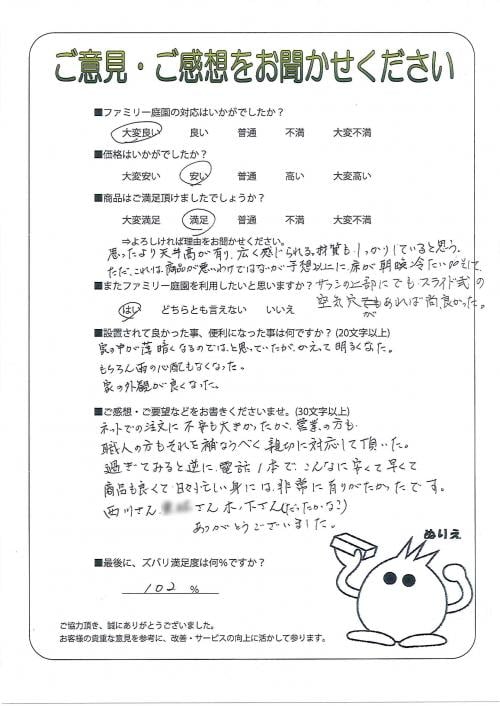 ご意見・ご感想をお聞かせください
■ファミリー庭園の対応はいかがでしたか?
大変良い 良い 普通 不満 大変不満
■価格はいかがでしたか?
大変安い 安い 普通 高い 大変高い
■商品はご満足頂けましたでしょうか?
大変満足 満足 普通 不満 大変不満
⇒よろしければ理由をお聞かせください。
思ったより天井高が有り、広く感じられる。材質もしっかりしていると思う。
ただ、これは、商品が悪いわけではないが予想以上に、床が朝晩冷たい
サッシの上部にでもスライド式の
空気穴があれば尚良かった。
■またファミリー庭園を利用したいと思いますか?
はい どちらとも言えない いいえ
■設置されて良かった事、便利になった事は何ですか?(20文字以上)
家の中が薄暗くなるのでは、と思っていたが、かえって明るくなった。
もちろん雨の心配もなくなった。
家の外観が良くなった。
■ご感想・ご要望などをお書きくださいませ。(30文字以上)
ネットでの注文に不安も大きかったが、営業の方も
職人の方もそれを補なうべく親切に対応して頂いた。
過ぎてみると逆に、電話1本で、こんなに安くて早くて
商品も良くて、日々忙しい身には、非常に有りがたかったです。
西川さん さん 木ノ下さん(だったかな?)
ありがとうございました。
■最後に、ズバリ満足度は何%ですか?
102 %
ぬりえ
ご協力頂き、誠にありがとうございました。
お客様の貴重な意見を参考に、改善・サービスの向上に活かして参ります。